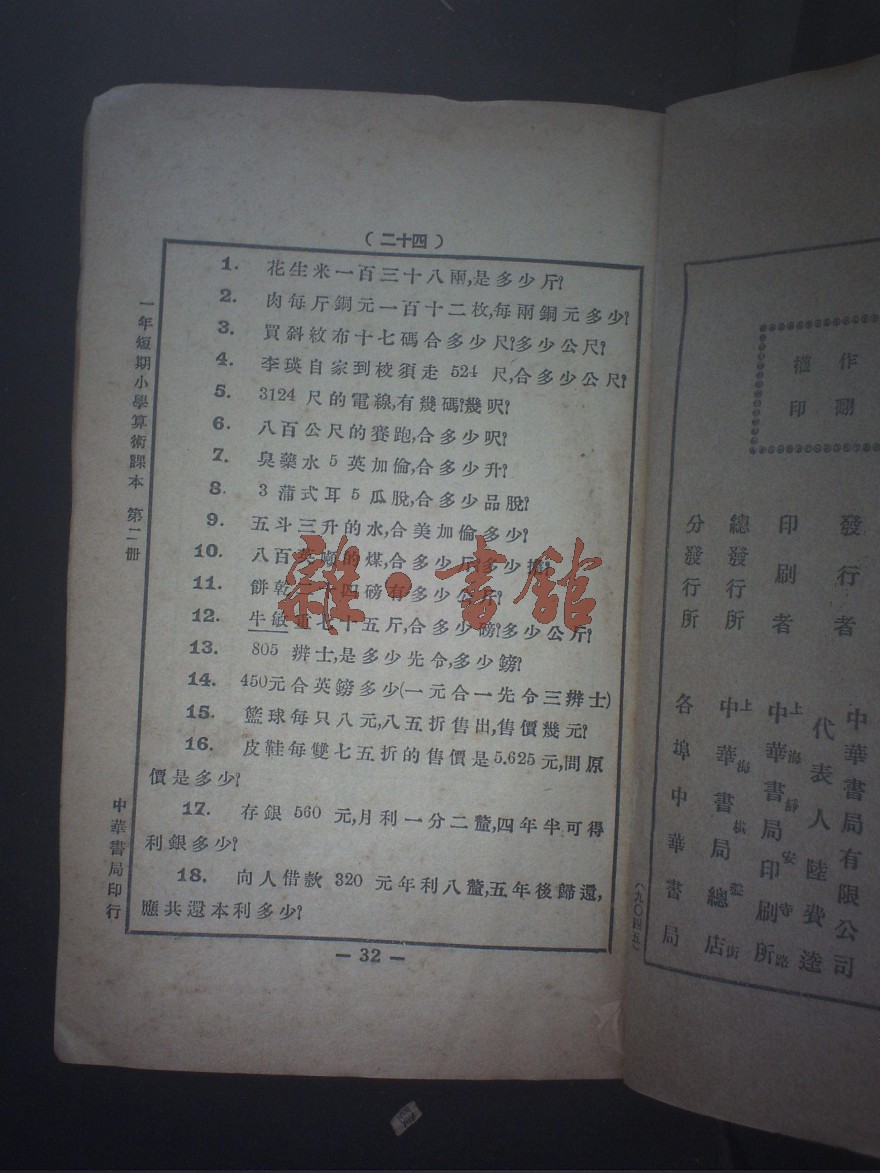 （二十四）
1. 花生米一百三十八兩,是多少斤?
2. 肉每斤銅元一百十二枚,每兩銅元多少?
3. 買斜紋布十七碼合多少尺?多少公尺?
4. 李瑛自家到校須走 524 尺,合多少公尺?
5. 3124 尺的電線,有幾碼?幾呎?
6. 八百公尺的賽跑,合多少呎?
7. 臭藥水 5 英加倫,合多少升?
8. 3 蒲式耳 5 瓜脫,合多少品脫?
9. 五斗三升的水,合美加倫多少?
10. 八百英噸的煤,合多少斤?多少擔?
11. 餅乾二十四磅有多少公斤?
12. 牛敏重七十五斤,合多少磅?多少公斤?
13. 805 辨士,是多少先令,多少鎊?
14. 450元合英鎊多少(一元合一先令三辨士)
15. 籃球每只八元,八五折售出,售價幾元?
16. 皮鞋每雙七五折的售價是5.625元,問原
價是多少?
17. 存銀 560 元,月利一分二釐,四年半可得
利銀多少?
18. 向人借款 320 元年利八釐,五年後歸還,
應共還本利多少?
— 32 —
一年短期小學算術課本 第二冊
中華書局印行
雜·書館
作翻
權印
發行者 中華書局有限公司
代表人陸費逵
印刷者 上海靜安寺路
中華書局印刷所
總發行所 上海棋盤街
中華書局總店
分發行所 各埠中華書局
(九〇四五)